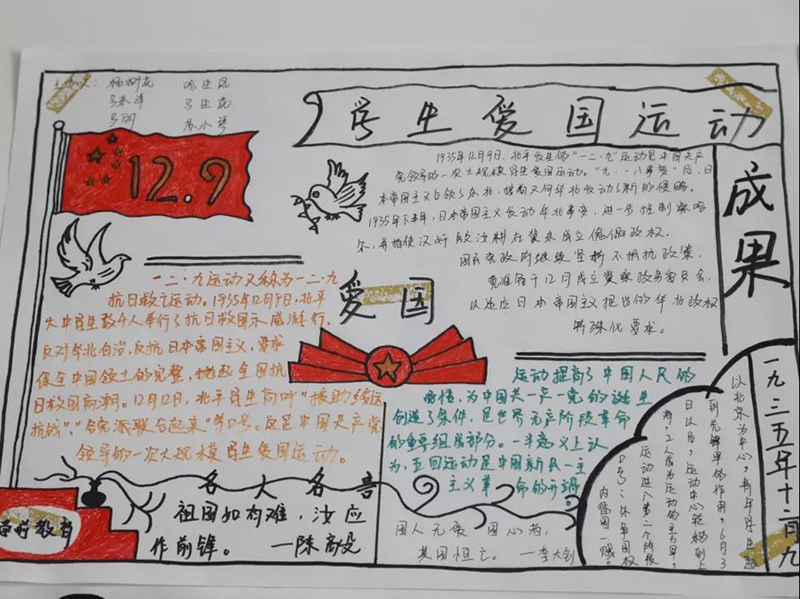 杨树花
学生爱国运动
成果
12.9
1935年12月9日，北平发生的“一二·九”运动是中国共产
党领导的一次大规模学生爱国运动。“九·一八事变”后，日
本帝国主义占领了东北，
1935年下半年，日本帝国主义发动华北事变，进一步控制察哈
尔，并指使汉奸殷汝耕在冀东成立傀儡政权。
国民党政府继续坚持不抵抗政策，
冀察政务委员会，
以适应日本帝国主义提出的华北政权
特殊化要求。
一二·九运动又称为一二·九
抗日救亡运动。1935年12月9日，北平
大中学生数千人举行了抗日救国示威游行，
反对华北自治，反抗日本帝国主义，要求
保全中国领土的完整，掀起全国抗
日救国高潮。12月12日，北平学生高呼“援助绥远
抗战”、“各党派联合起来”等口号。这是中国共产党
领导的一次大规模学生爱国运动。
爱国
运动提高了中国人民的
觉悟，为中国共产党的诞生
创造了条件，是世界无产阶级革命
的重要组成部分。
为，五四运动是中国新民主
主义革命的开端。
名人名言
祖国如有难，汝应
作前锋。 —陈毅
国人无爱国心者，
其国恒亡。 —李大钊
一九三五年十二月九
以北京为中心，青年学生起
到先锋军的作用。6月3
日以后，运动中心转移到上
海，工人成为运动的主力军，
运动进入第二个阶段
口号：外争国权
内惩国贼。